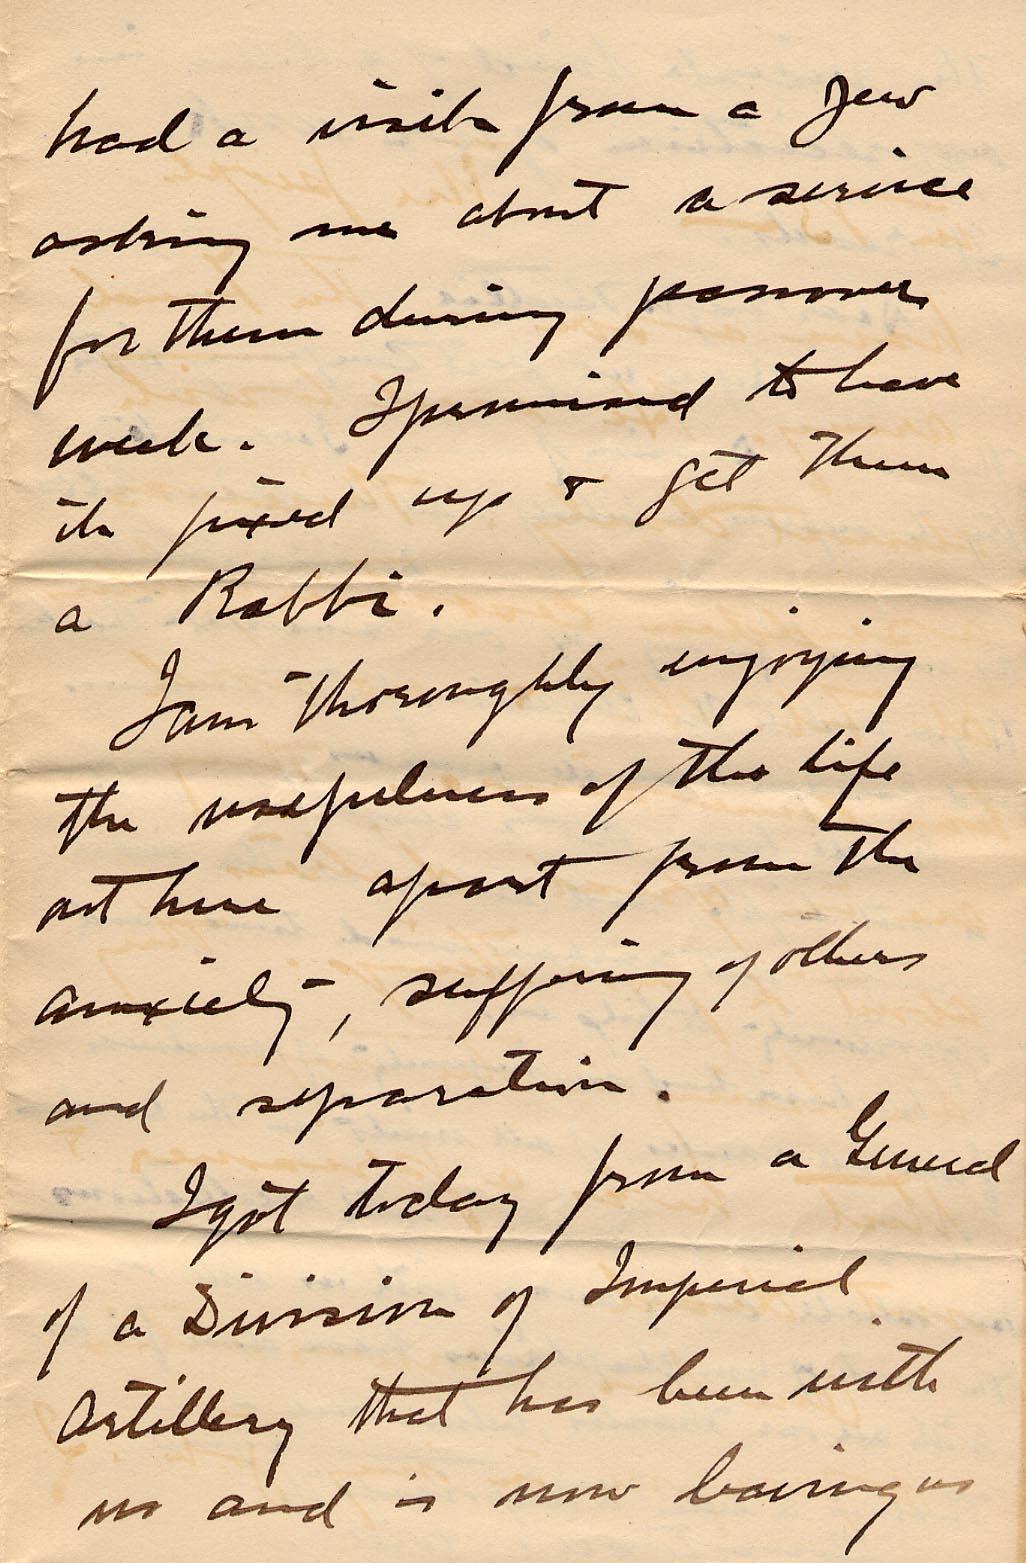 had a visit from a Jew
asking me about a service
for them during passover
week. I promised to have
it fixed up & get them
a Rabbi.
I am thoroughly enjoying
the usefulness of the life
out here apart from the
anxiety, suffering of others
and separation.
I got today from a General
of a Division of Imperial
Artillery that has been with
us and is now leaving us